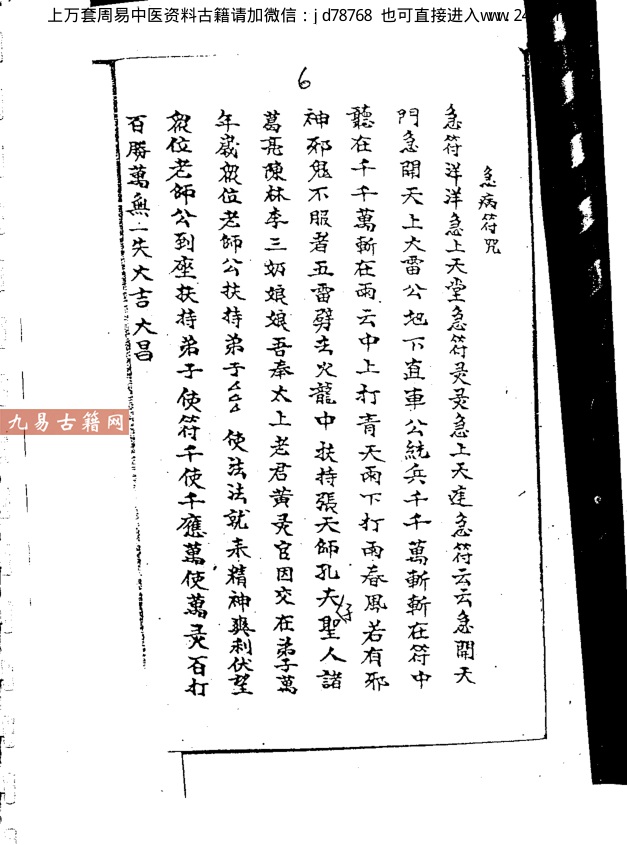 上万套周易中医资料古籍请加微信：jd78768 也可直接进入www.24
6
急病符咒
急符洋洋急上天堂急符灵灵急上天庭急符云云急開天
門急開天上大雷公地下直車公統兵千千萬斬斬在符中
聽在千千萬斬在雨云中上打青天雨下打雨春風若有邪
神邪鬼不服者五雷劈主火龍中扶持張天師孔夫聖人諸
仔
葛亮陳林李三奶娘娘吾奉太上老君黄灵官因交在弟子萬
年歲眾位老師公扶持弟子厶厶使法法就来精神爽利伏望
眾位老師公到座扶持弟子使符千使千應萬使萬灵百打
百勝萬無一失大吉大昌
九易古籍网